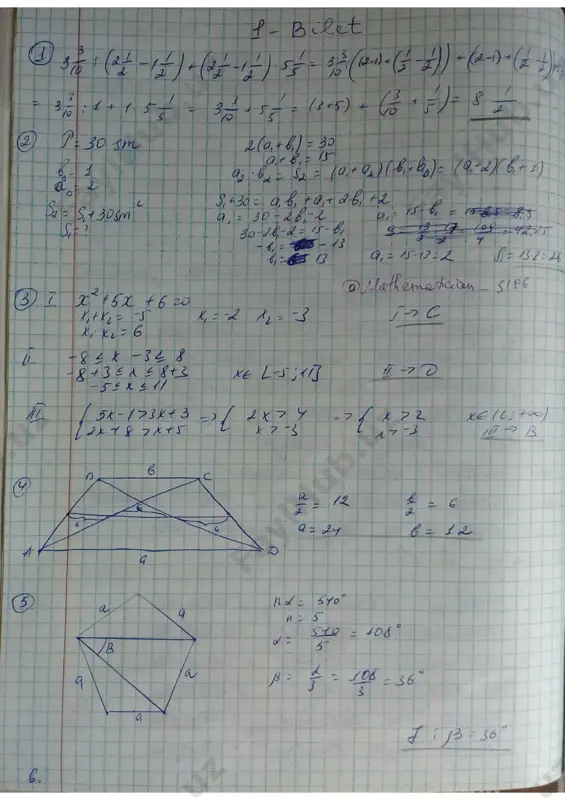 1 - Bilet
① 3 3/10 : (2 1/2 - 1 1/2) + (2 1/2 - 1 1/2) · 5 1/5 = 3 3/10 : ((2-1) + (1/2 - 1/2)) + (2-1) + (1/2 - 1/2)
= 3 3/10 : 1 + 1 · 5 1/5 = 3 3/10 + 5 1/5 = (3+5) + (3/10 + 1/5) = 8 1/2
② P = 30 sm
b₀ = 1
a₀ = 2
S₂ = S₁ + 30 sm²
S₁ = ?
2(a₁ + b₁) = 30
a₁ + b₁ = 15
a₂ · b₂ = S₂ = (a₁ + a₀)(b₁ + b₀) = (a₁ + 2)(b₁ + 1)
S₁ + 30 = a₁b₁ + a₁ + 2b₁ + 2
a₁ = 30 - 2b₁ - 2
30 - 2b₁ - 2 = 15 - b₁
-b₁ = -13
b₁ = 13
a₁ = 15 - b₁ =
a₁ = 15 - 13 = 2
S₁ = 13 · 2 = 26
@Mathematician_5186
③ I x² + 5x + 6 = 0
x₁ + x₂ = -5
x₁ · x₂ = 6
x₁ = -2 x₂ = -3
I → C
II -8 ≤ x - 3 ≤ 8
-8 + 3 ≤ x ≤ 8 + 3
-5 ≤ x ≤ 11
x ∈ [-5; 11]
II → D
III { 5x - 1 > 3x + 3 => { 2x > 4 => { x > 2 x ∈ (2; +∞)
2x + 8 > x + 5 x > -3 x > -3 III → B
④ B b C
6
6 6
A a D
a/2 = 12 b/2 = 6
a = 24 b = 12
⑤ a a
B
a a
a
nα = 540°
n = 5
α = 540/5 = 108°
β = α/3 = 108/3 = 36°
J : β = 36°
6.